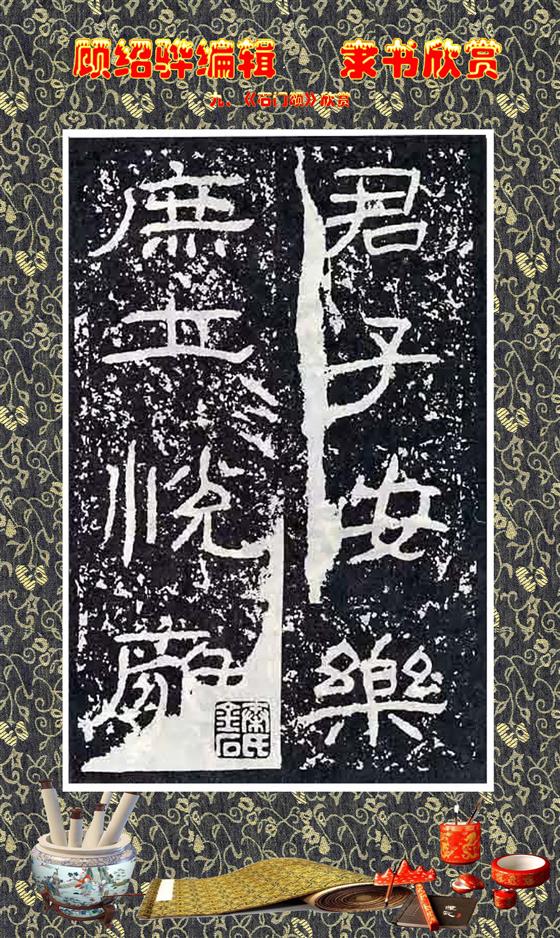 顾绍骅编辑 隶书欣赏
九、《石门颂》欣赏
君子安樂
庶士悦雝